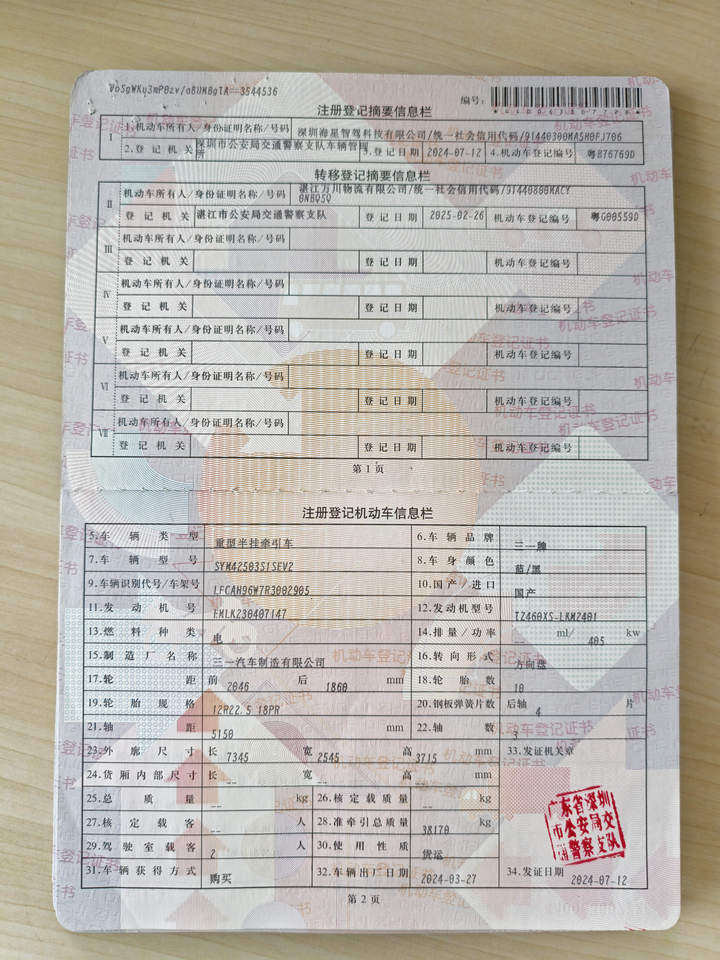 VoSgWKy3mP0zv/aBUMBglA==3544536
编号:
注册登记摘要信息栏
I 1.机动车所有人/身份证明名称/号码 深圳海星智驾科技有限公司/统一社会信用代码/91440300MA5H0FJ706
2.登记机关 深圳市公安局交通警察支队车辆管理所 3.登记日期 2024-07-12 4.机动车登记编号 粤B76769D
转移登记摘要信息栏
II 机动车所有人/身份证明名称/号码 湛江万川物流有限公司/统一社会信用代码/91440800MACY0NBQ5Q
登记机关 湛江市公安局交通警察支队 登记日期 2025-02-26 机动车登记编号 粤G00559D
III 机动车所有人/身份证明名称/号码
登记机关 登记日期 机动车登记编号
IV 机动车所有人/身份证明名称/号码
登记机关 登记日期 机动车登记编号
V 机动车所有人/身份证明名称/号码
登记机关 登记日期 机动车登记编号
VI 机动车所有人/身份证明名称/号码
登记机关 登记日期 机动车登记编号
VII 机动车所有人/身份证明名称/号码
登记机关 登记日期 机动车登记编号
第1页
注册登记机动车信息栏
5.车辆类型 重型半挂牵引车 6.车辆品牌 三一牌
7.车辆型号 SYM42503S1SEV2 8.车身颜色 蓝/黑
9.车辆识别代号/车架号 LFCAH96W7R3002905 10.国产/进口 国产
11.发动机号 EMLK230407147 12.发动机型号 TZ460XS-LKM2401
13.燃料种类 电 14.排量/功率 ml/ 405 kw
15.制造厂名称 三一汽车制造有限公司 16.转向形式 方向盘
17.轮距 前 2046 后 1860 mm 18.轮胎数 10
19.轮胎规格 12R22.5 18PR 20.钢板弹簧片数 后轴 4 片
21.轴距 5150 mm 22.轴数 3
23.外廓尺寸 长 7345 宽 2545 高 3715 mm 33.发证机关章
24.货厢内部尺寸 长 -- 宽 -- 高 -- mm
25.总质量 -- kg 26.核定载质量 -- kg
27.核定载客 -- 人 28.准牵引总质量 38170 kg
29.驾驶室载客 2 人 30.使用性质 货运
31.车辆获得方式 购买 32.车辆出厂日期 2024-03-27 34.发证日期 2024-07-12
广东省深圳市公安局交通警察支队
第2页